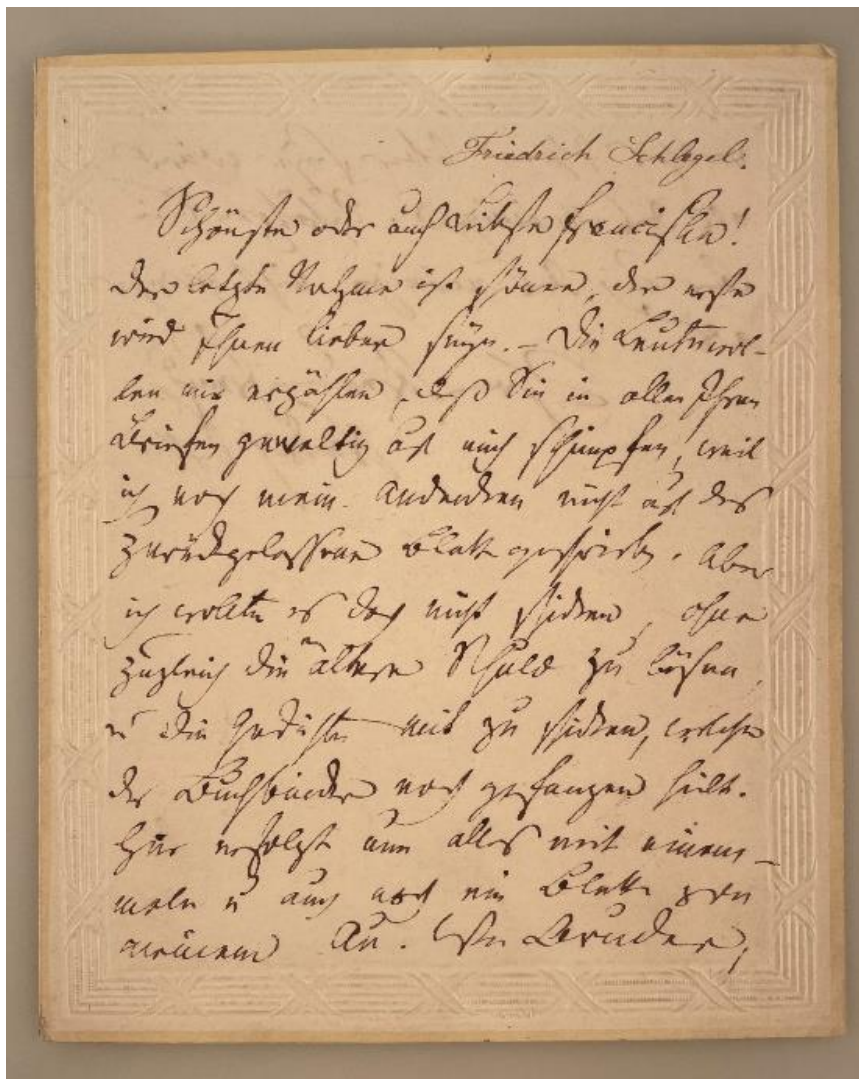 Friedrich Schlegel.
Schönste oder auch Liebste Franciska!
Der letzte Nahme ist schöner, der erste
wird Ihnen lieber seyn. – Die Leute wol-
len mir erzählen, daß Sie in allen Ihren
Briefen gewaltig auf mich schimpfen, weil
ich noch mein Andenken nicht auf das
zurückgelassene Blatt geschrieben. Aber
ich wollte es doch nicht schicken, ohne
zugleich die ältere Schuld zu lösen,
u die Gedichte mit zu schicken, welche
der Buchbinder noch gefangen hielt.
Hier erfolgt nun alles mit einem-
male u auch noch ein Blatt von
meinem Bruder,